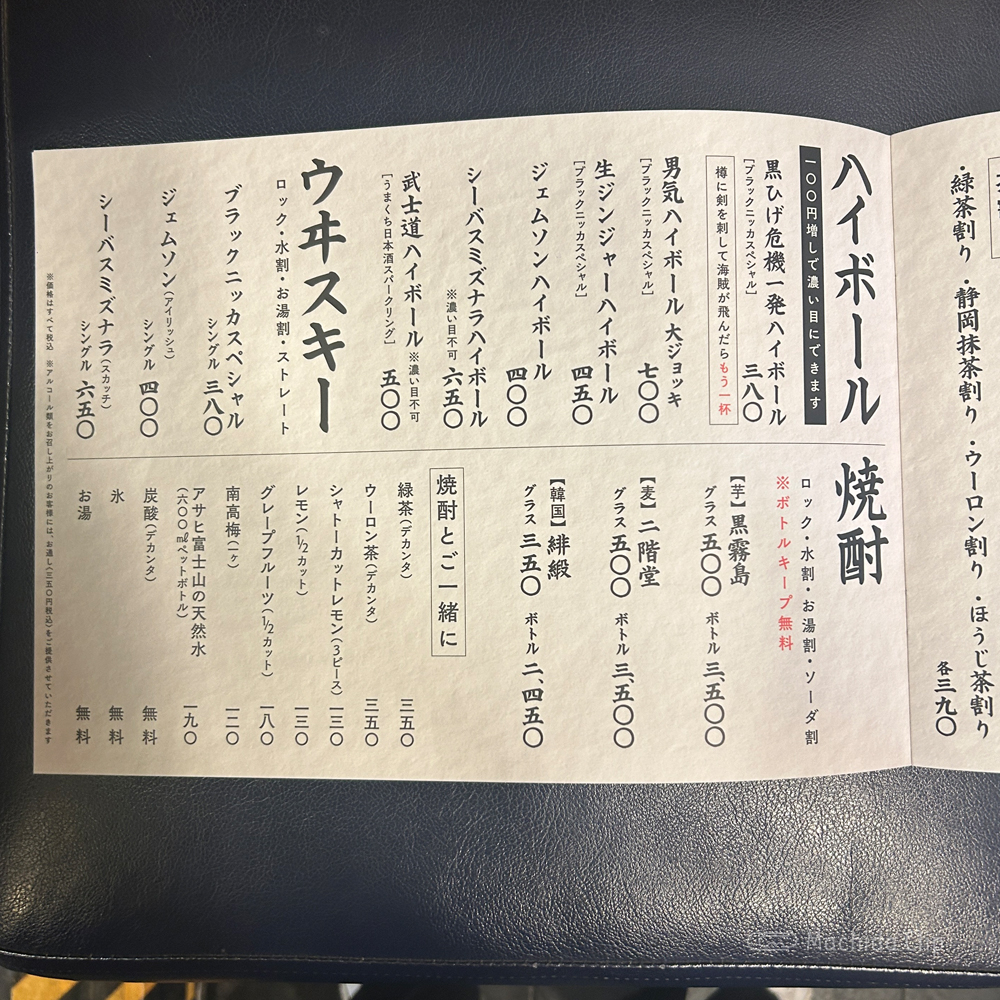 ・緑茶割り ・静岡抹茶割り ・ウーロン割り ・ほうじ茶割り
各三九〇
ハイボール
一〇〇円増しで濃い目にできます
黒ひげ危機一発ハイボール
[ブラックニッカスペシャル]
三八〇
樽に剣を刺して海賊が飛んだらもう一杯
男気ハイボール 大ジョッキ
[ブラックニッカスペシャル]
七〇〇
生ジンジャーハイボール
[ブラックニッカスペシャル]
四五〇
ジェムソンハイボール
四〇〇
シーバスミズナラハイボール
※濃い目不可
六五〇
武士道ハイボール ※濃い目不可
[うまくち日本酒スパークリング]
五〇〇
ウヰスキー
ロック・水割・お湯割・ストレート
ブラックニッカスペシャル
シングル 三八〇
ジェムソン(アイリッシュ)
シングル 四〇〇
シーバスミズナラ(スカッチ)
シングル 六五〇
焼酎
ロック・水割・お湯割・ソーダ割
※ボトルキープ無料
【芋】黒霧島
グラス 五〇〇 ボトル 三、五〇〇
【麦】二階堂
グラス 五〇〇 ボトル 三、五〇〇
【韓国】緋緞
グラス 三五〇 ボトル 二、四五〇
焼酎とご一緒に
緑茶(デカンタ) 三五〇
ウーロン茶(デカンタ) 三五〇
シャトーカットレモン(3ピース) 一三〇
レモン(1/2カット) 一三〇
グレープフルーツ(1/2カット) 一八〇
南高梅(一ヶ) 一二〇
アサヒ富士山の天然水
(六〇〇mlペットボトル) 一九〇
炭酸(デカンタ) 無料
氷 無料
お湯 無料
※価格はすべて税込 ※アルコール類をお召し上がりのお客様には、お通し(三五〇円税込)をご提供させていただきます